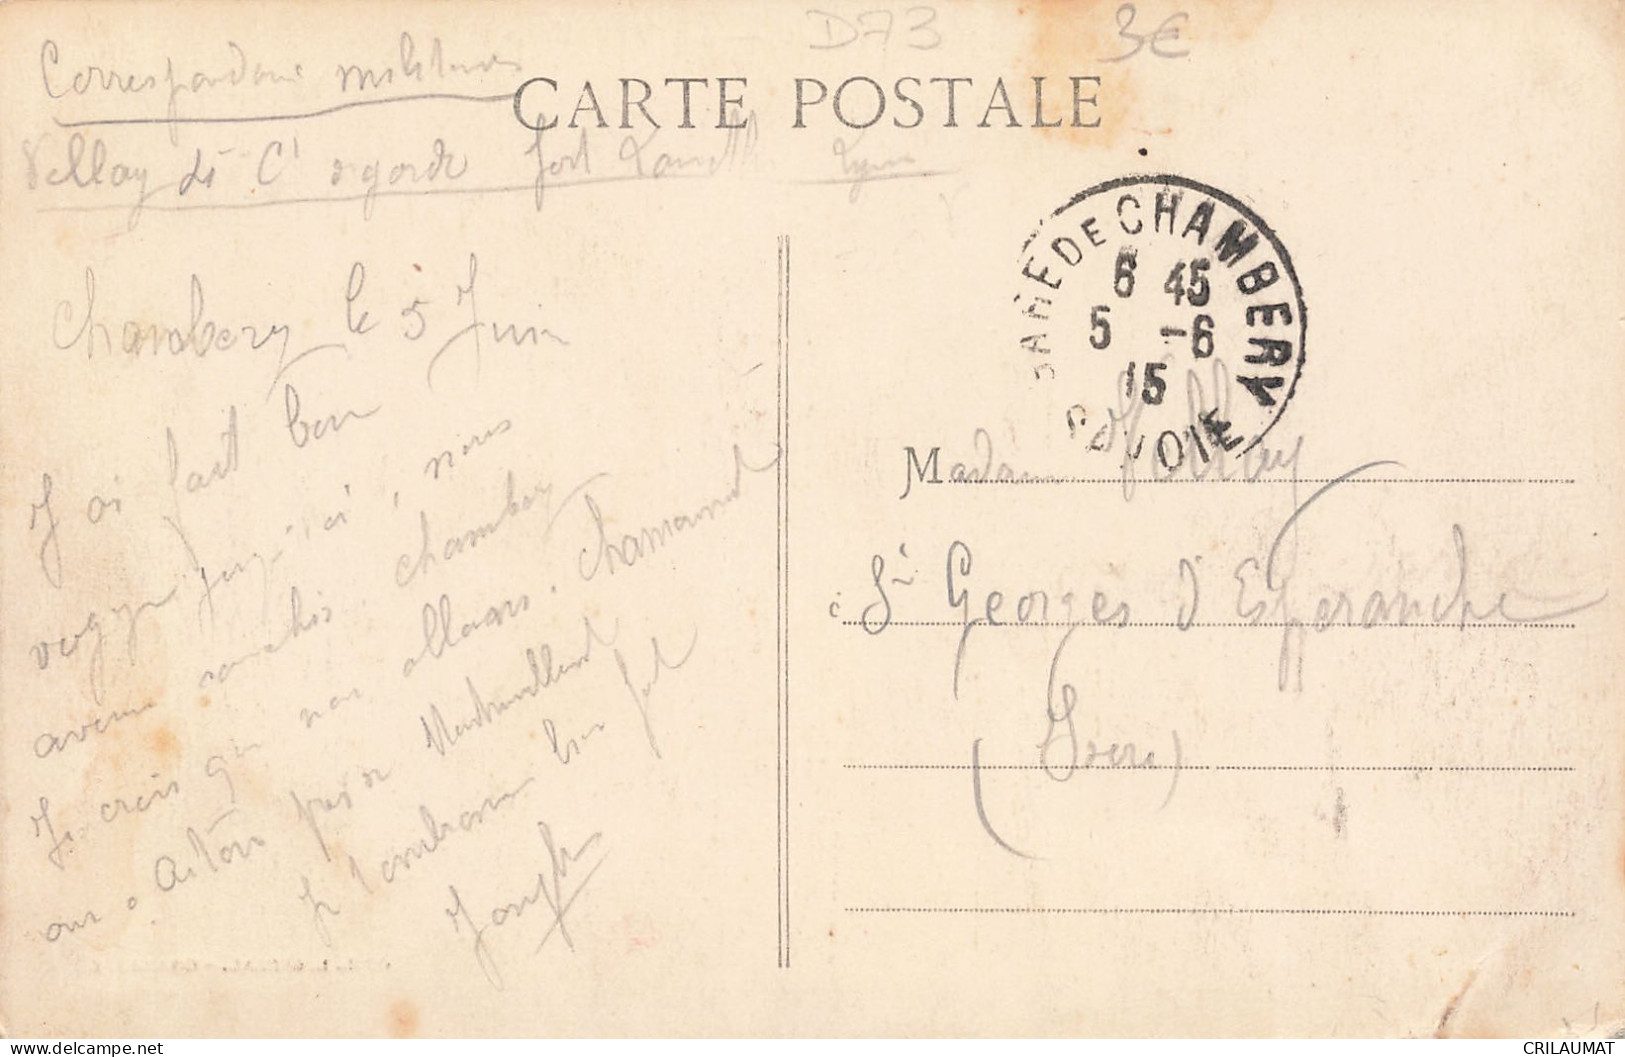 D73
3€
Correspondance militaires
CARTE POSTALE
Vellay Fort Lyon
GARE DE CHAMBERY
6 45
5 -6
15
SAVOIE
Chambery le 5 Juin
J ai fait bon
voyage jusqu'ici, nous
avons Chambery
Je crois que nous allons. Chamonix
ou a près de
Je t'embrasse bien fort
Joseph
Madame Vellay
à St Georges d'Esperanche
(Isere)
CRILAUMAT